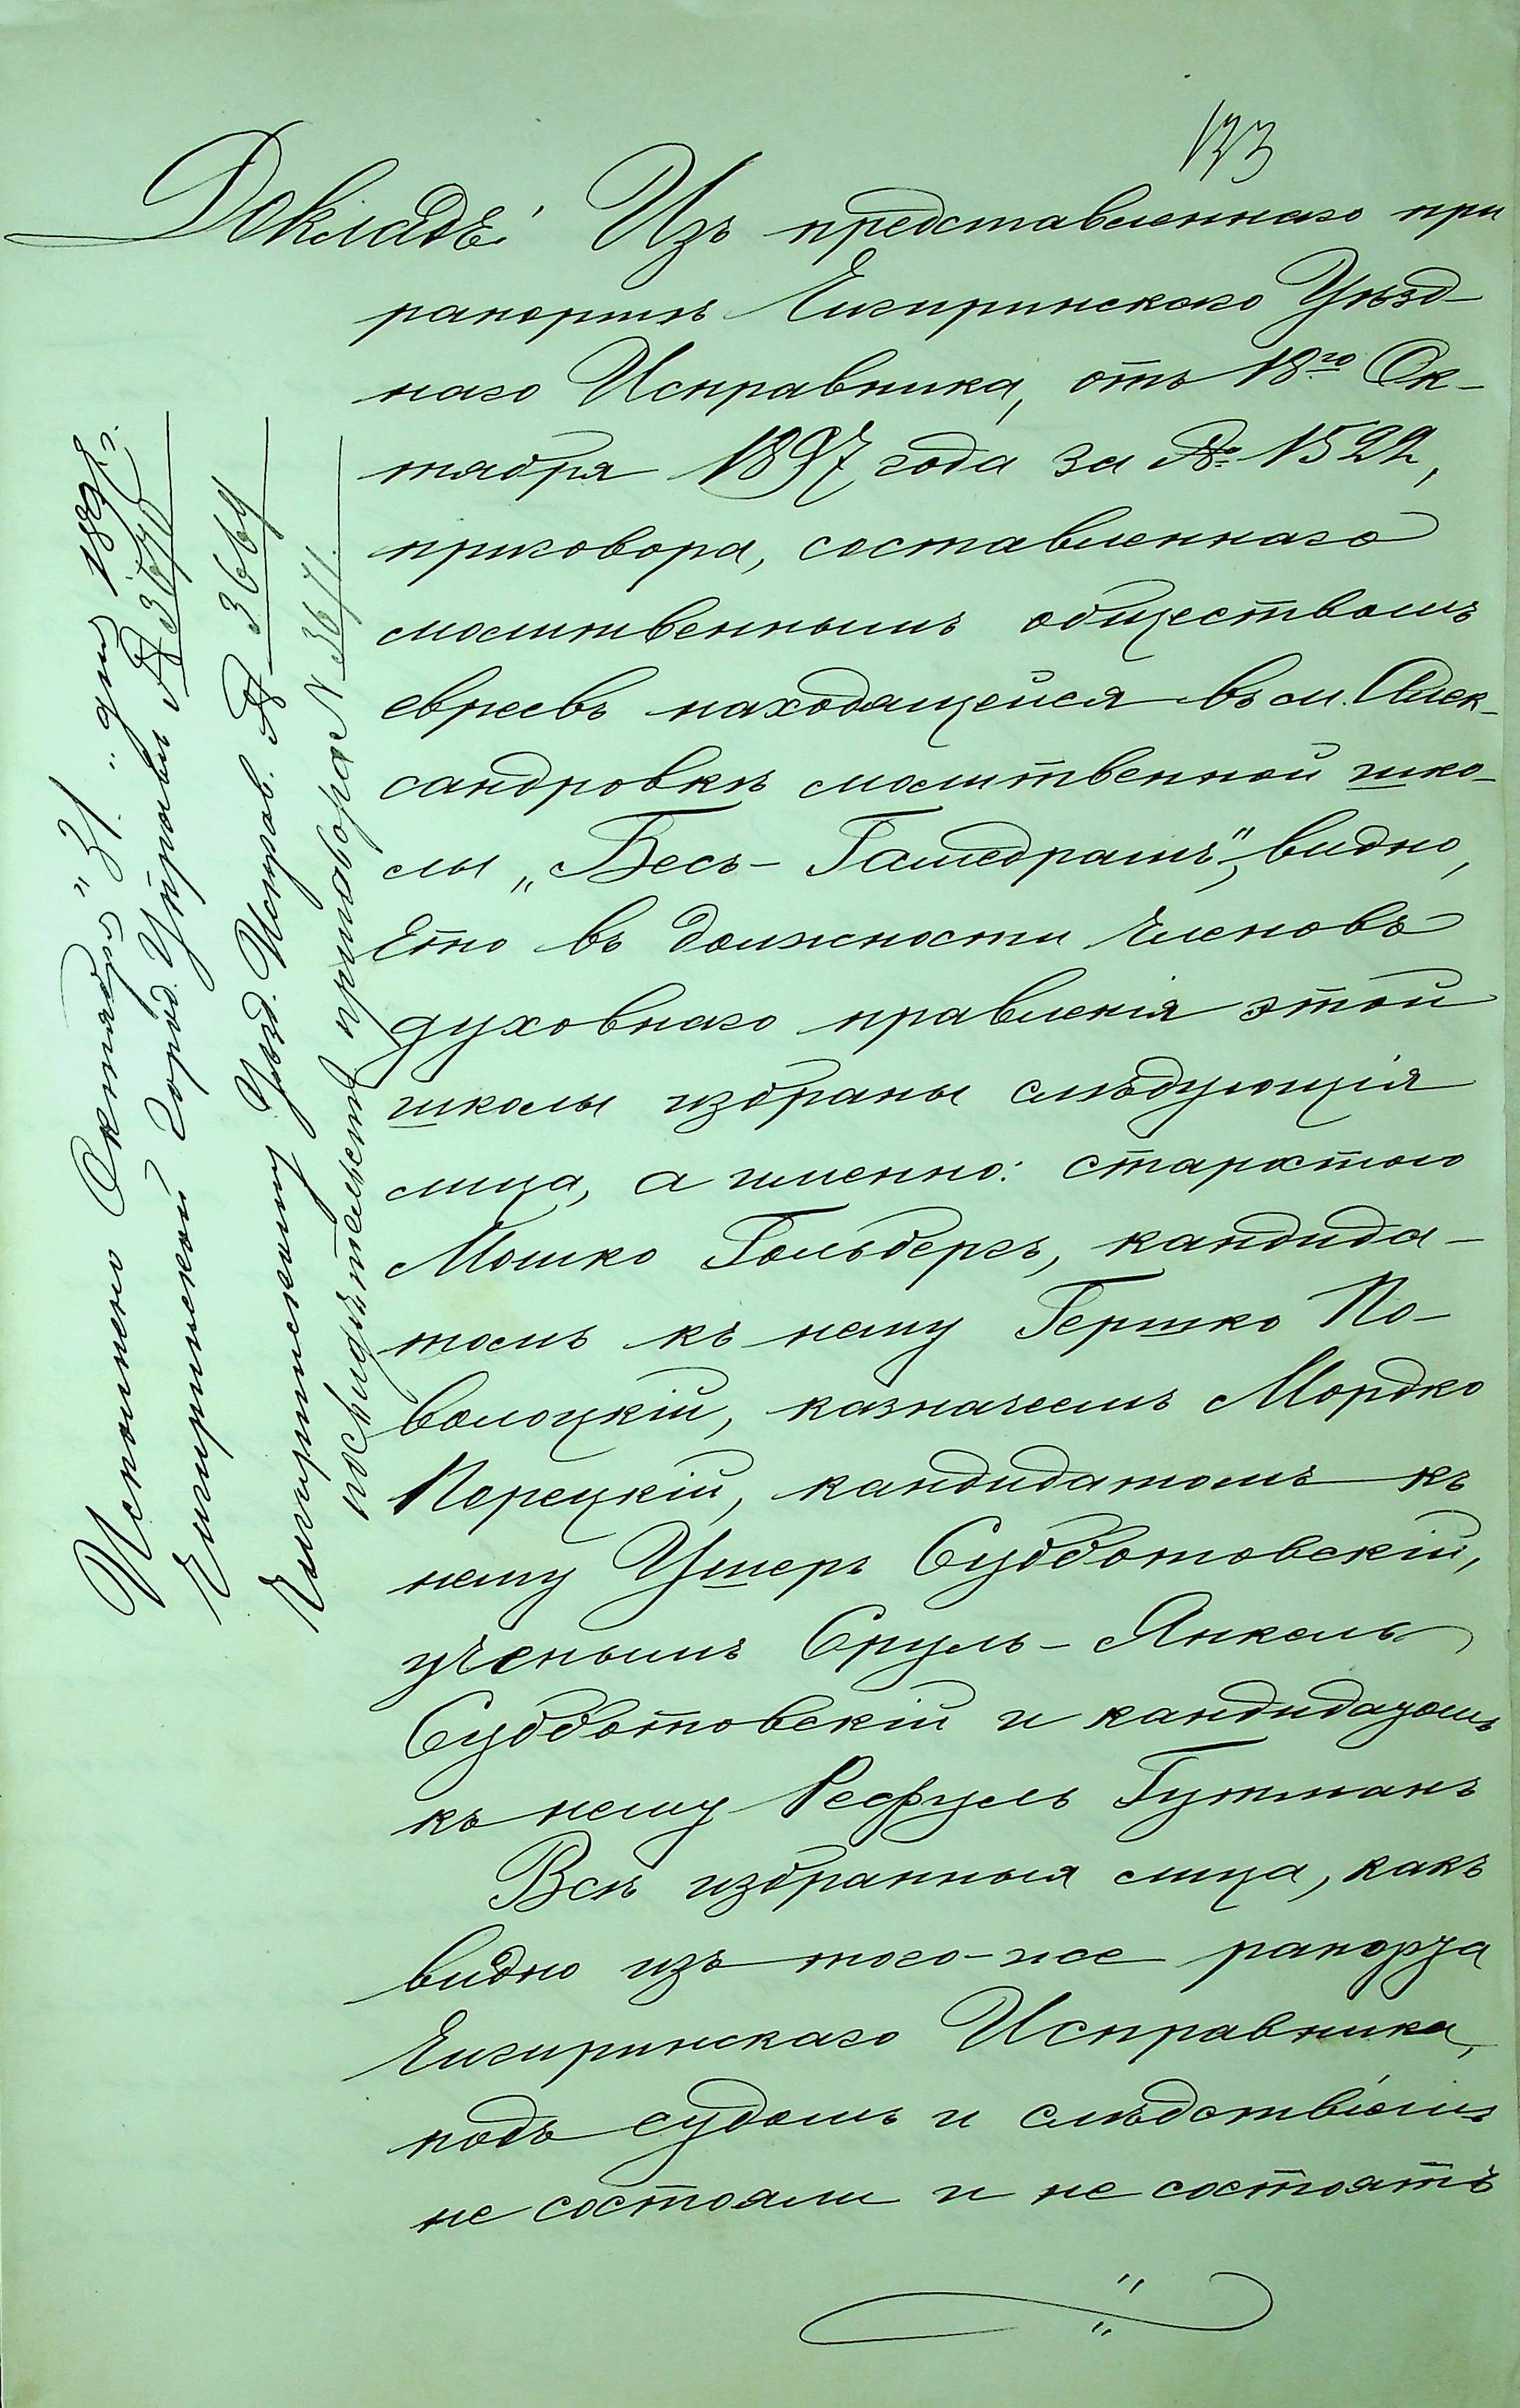 133
Докладъ: Изъ представленнаго при
рапортѣ Чигиринскаго Уѣзд-
наго Исправника, отъ 18го Ок-
тября 1897 года за № 1522,
приговора, составленнаго
молитвеннымъ обществомъ
евреевъ находящейся въ м. Алек-
сандровкѣ молитвенной шко-
лы „Бесъ-Гамедрашъ", видно,
что въ должности членовъ
духовнаго правленія этой
школы избраны слѣдующія
лица, а именно: старостою
Мошко Гольбергъ, кандида-
томъ къ нему Гершко По-
волоцкій, казначеемъ Мордко
Порецкій, кандидатомъ къ
нему Ушеръ Субботовскій,
ученымъ Сруль-Янкель
Субботовскій и кандидатомъ
къ нему Рефуль Гутманъ
Всѣ избранныя лица, какъ
видно изъ того-же рапорта
Чигиринскаго Исправника,
подъ судомъ и слѣдствіемъ
не состояли и не состоятъ
Исполнено Октября „31" дня 1897 г.
Чигиринской Город. Управѣ № 3670
Чигиринскому Уѣзд. Исправ. № 3669
приговора № 3671.